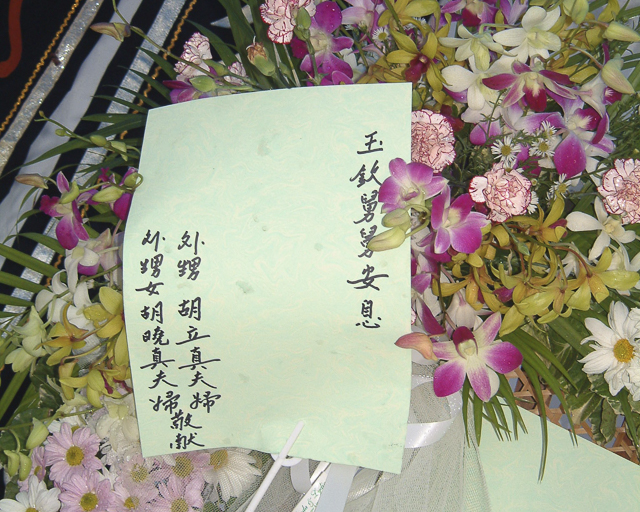 玉欽舅舅安息
外甥 胡立真夫婦
外甥女胡曉真夫婦敬献